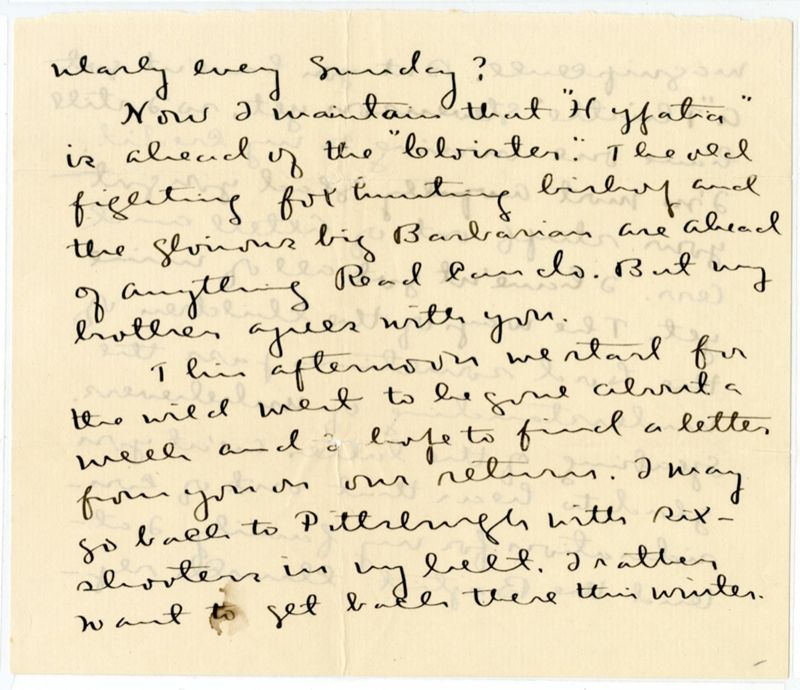 nearly every Sunday?
Now I maintain that "Hypatia"
is ahead of the "Cloister." The old
fighting fox hunting bishop and
the glorious big Barbarian are ahead
of anything Read can do. But my
brother agrees with you.
This afternoon we start for
the wild west to be gone about a
week and I hope to find a letter
from you on our return. I may
go back to Pittsburgh with six-
shooters in my belt. I rather
want to get back there this winter.